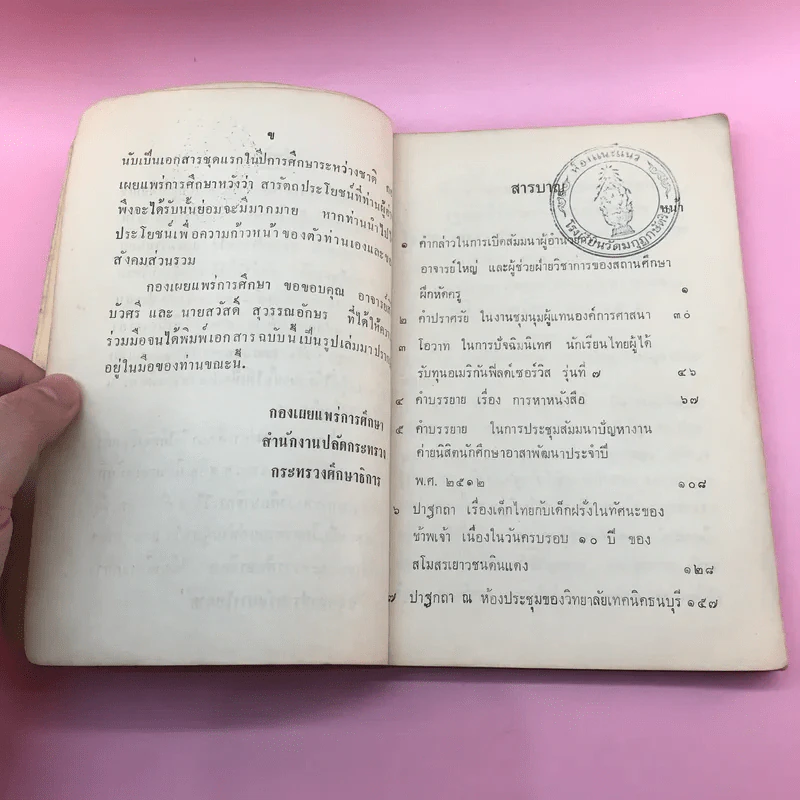 ข
นับเป็นเอกสารชุดแรกในปีการศึกษาระหว่างชาติ
เผยแพร่การศึกษาหวังว่า สารัตถประโยชน์ที่ท่านผู้
พึงจะได้รับนั้นย่อมจะมีมากมาย หากท่านนำไป
ประโยชน์เพื่อความก้าวหน้าของตัวท่านเองและ
สังคมส่วนรวม
กองเผยแพร่การศึกษา ขอขอบคุณ อาจารย์
บัวศรี และ นายสวัสดิ์ สุวรรณอักษร ที่ได้ให้
ร่วมมือจนได้พิมพ์เอกสารฉบับนี้เป็นรูปเล่มมา
อยู่ในมือของท่านขณะนี้.
กองเผยแพร่การศึกษา
สำนักงานปลัดกระทรวง
กระทรวงศึกษาธิการ
ห้องแนะแนว
โรงเรียนวัดมกุฏกษัตริย์
สารบาญ
หน้า
๑ คำกล่าวในการเปิดสัมมนาผู้อำนวยการ
อาจารย์ใหญ่ และผู้ช่วยฝ่ายวิชาการของสถานศึกษา
ฝึกหัดครู ๑
๒ คำปราศรัย ในงานชุมนุมผู้แทนองค์การศาสนา ๓๐
๓ โอวาท ในการปัจฉิมนิเทศ นักเรียนไทยผู้ได้
รับทุนอเมริกันฟีลด์เซอร์วิส รุ่นที่ ๗ ๔๖
๔ คำบรรยาย เรื่อง การหาหนังสือ ๖๗
๕ คำบรรยาย ในการประชุมสัมมนาปัญหางาน
ค่ายนิสิตนักศึกษาอาสาพัฒนาประจำปี
พ.ศ. ๒๕๑๒ ๑๐๘
๖ ปาฐกถา เรื่องเด็กไทยกับเด็กฝรั่งในทัศนะของ
ข้าพเจ้า เนื่องในวันครบรอบ ๑๐ ปี ของ
สโมสรเยาวชนดินแดง ๑๒๘
๗ ปาฐกถา ณ ห้องประชุมของวิทยาลัยเทคนิคธนบุรี ๑๕๗